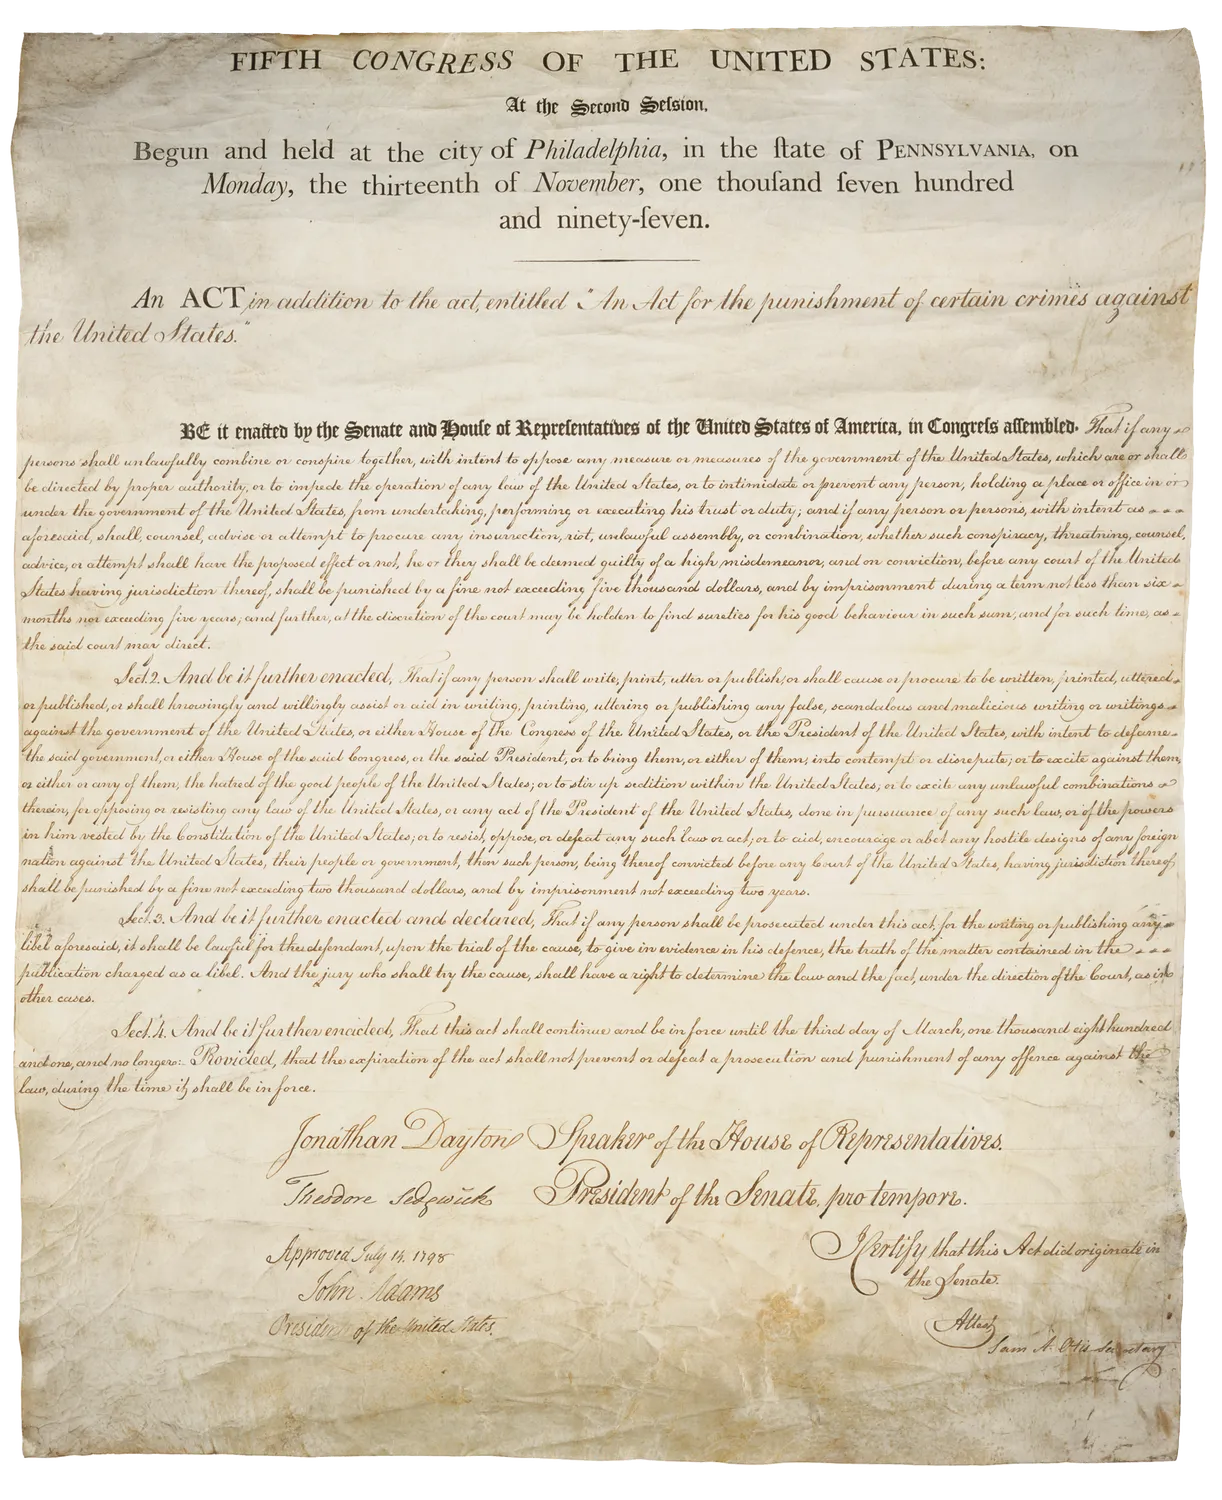 FIFTH CONGRESS OF THE UNITED STATES:
At the Second Seſsion,
Begun and held at the city of Philadelphia, in the ſtate of PENNSYLVANIA, on
Monday, the thirteenth of November, one thouſand ſeven hundred
and ninety-ſeven.
An ACT in addition to the act, entitled "An Act for the punishment of certain crimes against
the United States."
BE it enacted by the Senate and Houſe of Repreſentatives of the United States of America, in Congreſs aſſembled. That if any
persons shall unlawfully combine or conspire together, with intent to oppose any measure or measures of the government of the United States, which are or shall
be directed by proper authority, or to impede the operation of any law of the United States, or to intimidate or prevent any person, holding a place or office in or
under the government of the United States, from undertaking, performing or executing his trust or duty; and if any person or persons, with intent as
aforesaid, shall counsel, advise or attempt to procure any insurrection, riot, unlawful assembly, or combination, whether such conspiracy, threatning, counsel,
advice, or attempt shall have the proposed effect or not, he or they shall be deemed guilty of a high misdemeanor, and on conviction, before any court of the United
States having jurisdiction thereof, shall be punished by a fine not exceeding five thousand dollars, and by imprisonment during a term not less than six
months nor exceeding five years; and further, at the discretion of the court may be holden to find sureties for his good behaviour in such sum, and for such time, as
the said court may direct.
Sect. 2. And be it further enacted, That if any person shall write, print, utter or publish, or shall cause or procure to be written, printed, uttered
or published, or shall knowingly and willingly assist or aid in writing, printing, uttering or publishing any false, scandalous and malicious writing or writings
against the government of the United States, or either House of the Congress of the United States, or the President of the United States, with intent to defame
the said government, or either House of the said Congress, or the said President, or to bring them, or either of them, into contempt or disrepute; or to excite against them,
or either or any of them, the hatred of the good people of the United States; or to stir up sedition within the United States; or to excite any unlawful combinations
therein, for opposing or resisting any law of the United States, or any act of the President of the United States, done in pursuance of any such law, or of the powers
in him vested by the Constitution of the United States; or to resist, oppose, or defeat any such law or act; or to aid, encourage or abet any hostile designs of any foreign
nation against the United States, their people or government, then such person, being thereof convicted before any Court of the United States, having jurisdiction thereof,
shall be punished by a fine not exceeding two thousand dollars, and by imprisonment not exceeding two years.
Sect. 3. And be it further enacted and declared, That if any person shall be prosecuted under this act, for the writing or publishing any
libel aforesaid, it shall be lawful for the defendant, upon the trial of the cause, to give in evidence in his defence, the truth of the matter contained in the
publication charged as a libel. And the jury who shall try the cause, shall have a right to determine the law and the fact, under the direction of the Court, as in
other cases.
Sect. 4. And be it further enacted, That this act shall continue and be in force until the third day of March, one thousand eight hundred
and one, and no longer: Provided, that the expiration of the act shall not prevent or defeat a prosecution and punishment of any offence against the
law, during the time it shall be in force.
Jonathan Dayton Speaker of the House of Representatives.
Theodore Sedgwick President of the Senate, pro tempore.
Approved July 14, 1798
John Adams
President of the United States.
I Certify that this Act did originate in
the Senate.
Attest,
Sam A. Otis Secretary